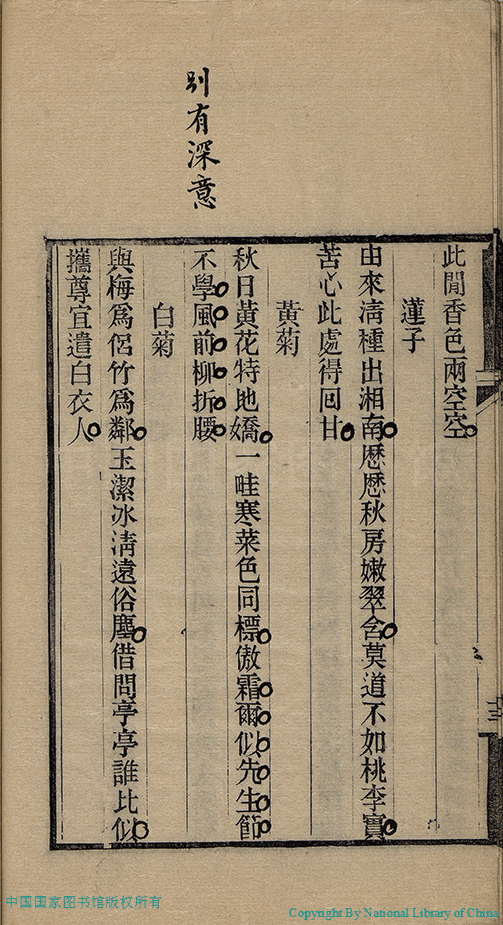 別有深意
此閒香色兩空空
蓮子
由來淸種出湘南歴歴秋房嫩翠含莫道不如桃李實
苦心此處得回甘
黃菊
秋日黃花特地嬌一畦寒菜色同標傲霜爾似先生節
不學風前柳折腰
白菊
與梅爲侶竹爲鄰玉潔冰淸遠俗塵借問亭亭誰比似
攜尊宜遣白衣人
十三
中国国家图书馆版权所有
Copyright By National Library of China